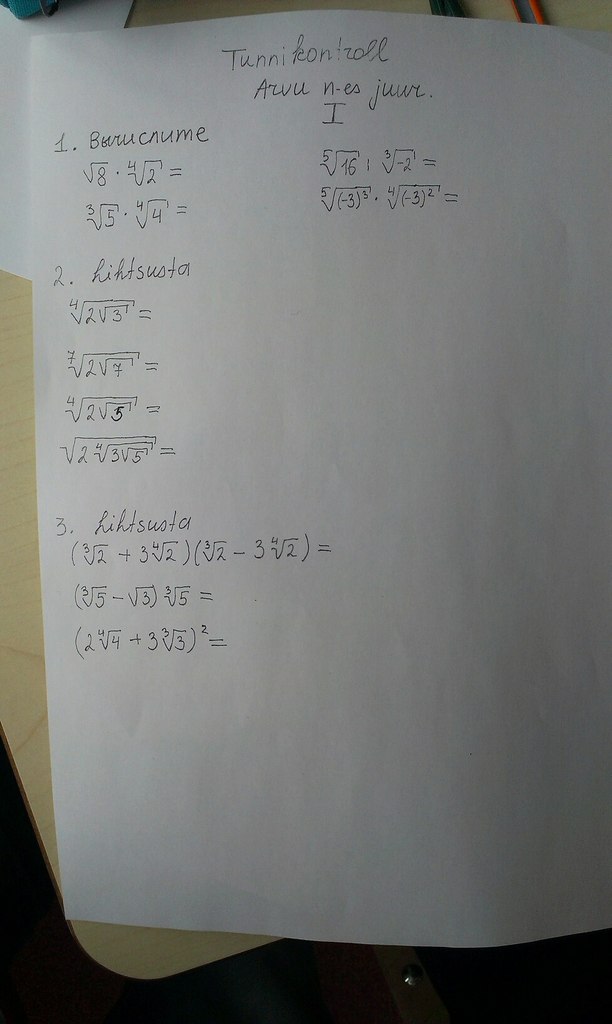 Tunnikontroll
Arvu n-es juur.
I
1. Вычислите
√8 · ∜2 =
⁵√16 : ∛-2 =
∛5 · ∜4 =
⁵√(-3)³ · ∜(-3)² =
2. Lihtsusta
∜(2√3) =
⁷√(2√7) =
∜(2√5) =
√(2∜(3√5)) =
3. Lihtsusta
(∛2 + 3∜2)(∛2 - 3∜2) =
(∛5 - √3) ∛5 =
(2∜4 + 3∛3)² =